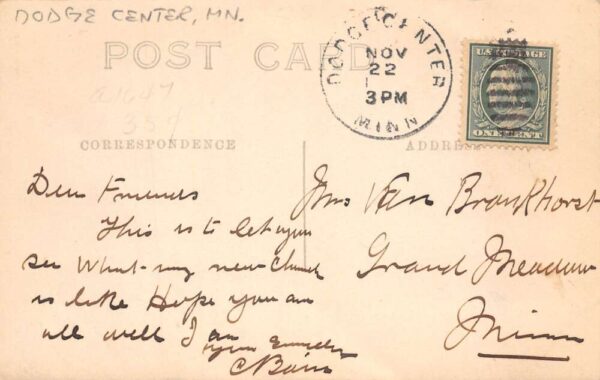 DODGE CENTER, MN.
POST CARD
DODGE CENTER
NOV
22
3 PM
MINN
U.S. POSTAGE
ONE CENT
CORRESPONDENCE
ADDRESS
Dear Friends
This is to let you
see what my new Church
is like Hope you are
all well I am
your
C Bain
Mrs Van Bronkhorst
Grand Meadow
Minn